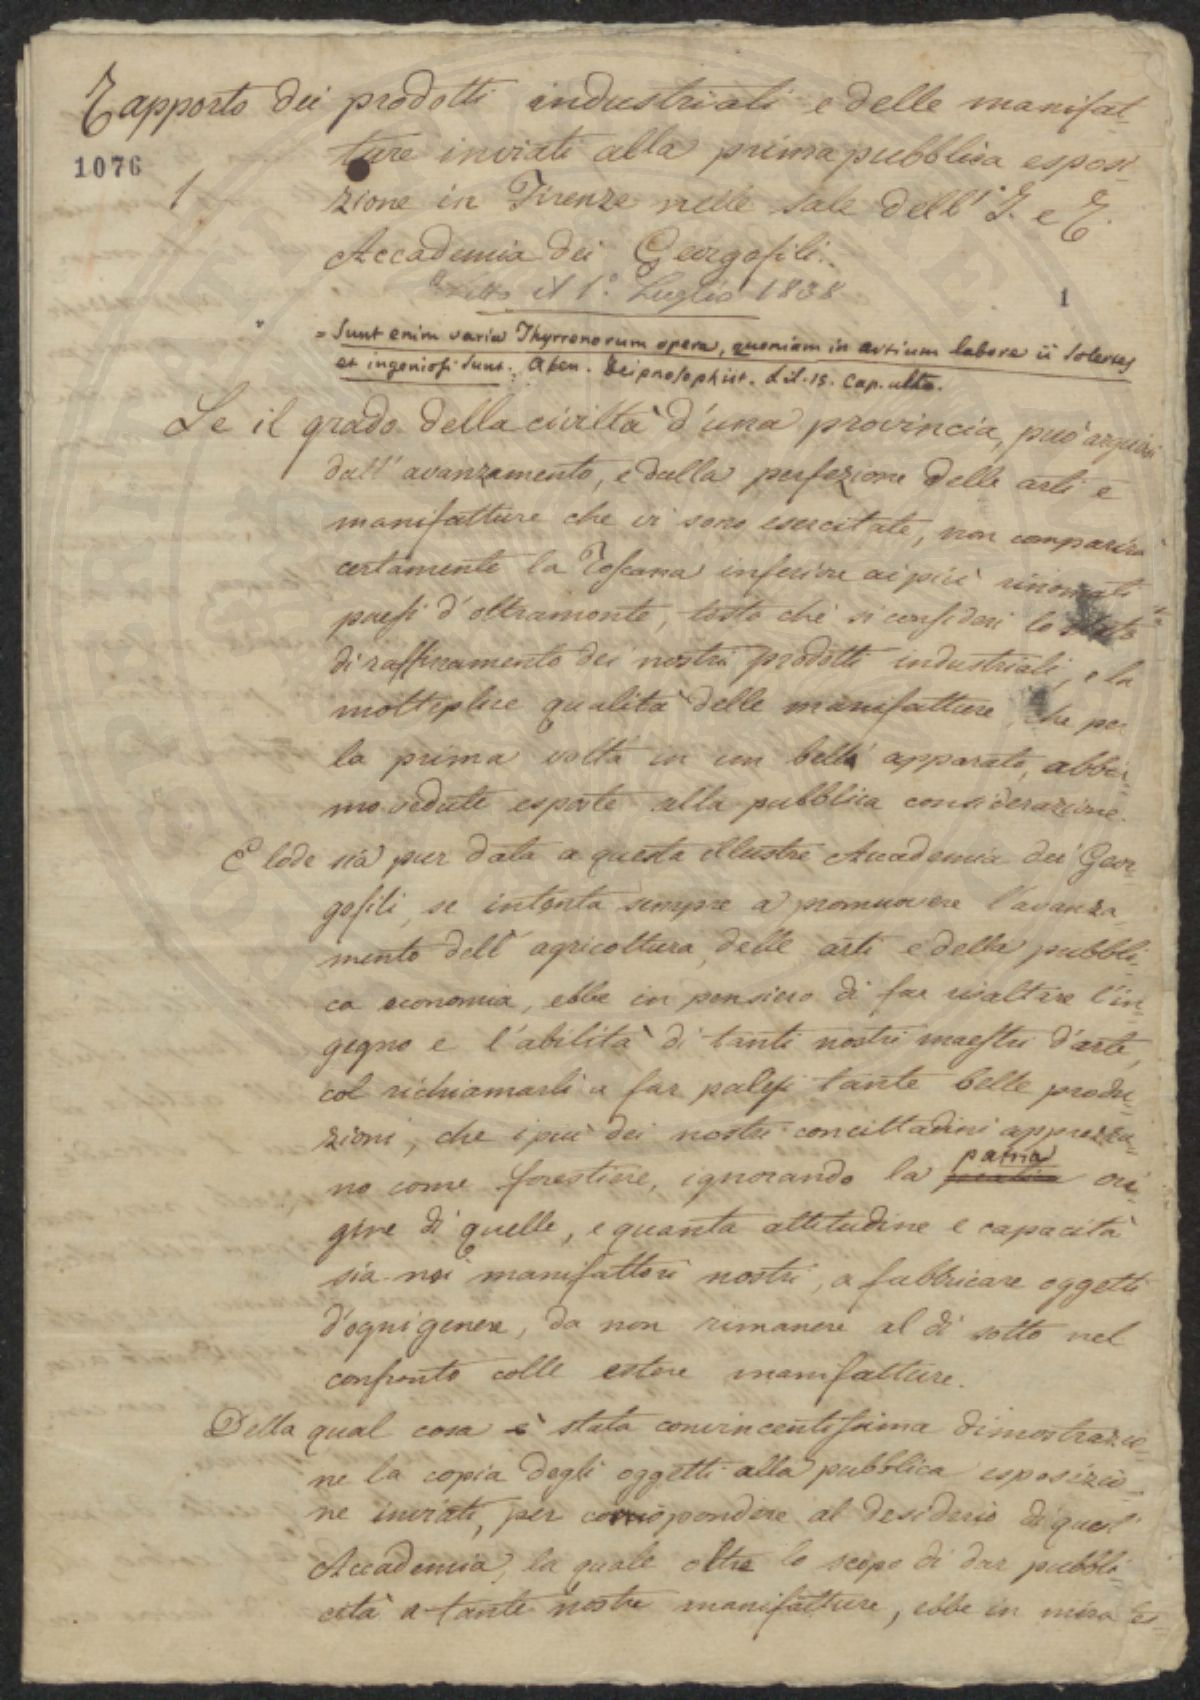 Rapporto dei prodotti industriali e delle manifat-
1076
ture inviati alla prima pubblica esposi-
1
zione in Firenze nelle Sale dell' I. e R.
Accademia dei Georgofili.
Letto il 1.° Luglio 1838
1
= Sunt enim varia Thyrrenorum opera, quoniam in artium labore ii solertes
et ingeniosi sunt. Aten. Deipnosophist. Lib. 15. Cap. ulto.
Se il grado della civiltà d'una provincia, può arguirsi
dall' avanzamento, e dalla perfezione delle arti e
manifatture che vi sono esercitate, non comparirà
certamente la Toscana inferiore ai più rinomati
paesi d'oltramonte, tosto che si consideri lo stato
di raffinamento dei nostri prodotti industriali, e la
molteplice qualità delle manifatture, che per
la prima volta in un bell' apparato, abbia-
mo vedute esposte alla pubblica considerazione.
E lode sia pur data a questa illustre Accademia dei Geor-
gofili, se intenta sempre a promuovere l'avanza-
mento dell' agricoltura, delle arti e della pubbli-
ca economia, ebbe in pensiero di far risaltare l'in-
gegno e l'abilità di tanti nostri maestri d'arte,
col richiamarli a far palesi tante belle produ-
zioni, che i più dei nostri concittadini apprezza-
no come forestiere, ignorando la patria ori-
gine di quelle, e quanta attitudine e capacità
sia nei manifattori nostri, a fabbricare oggetti
d'ogni genere, da non rimanere al di sotto nel
confronto colle estere manifatture.
Della qual cosa è stata convincentissima dimostrazio-
ne la copia degli oggetti alla pubblica esposizio-
ne inviati, per corrispondere al desiderio di quest'
Accademia, la quale oltre lo scopo di dar pubbli-
cità a tante nostre manifatture, ebbe in mira